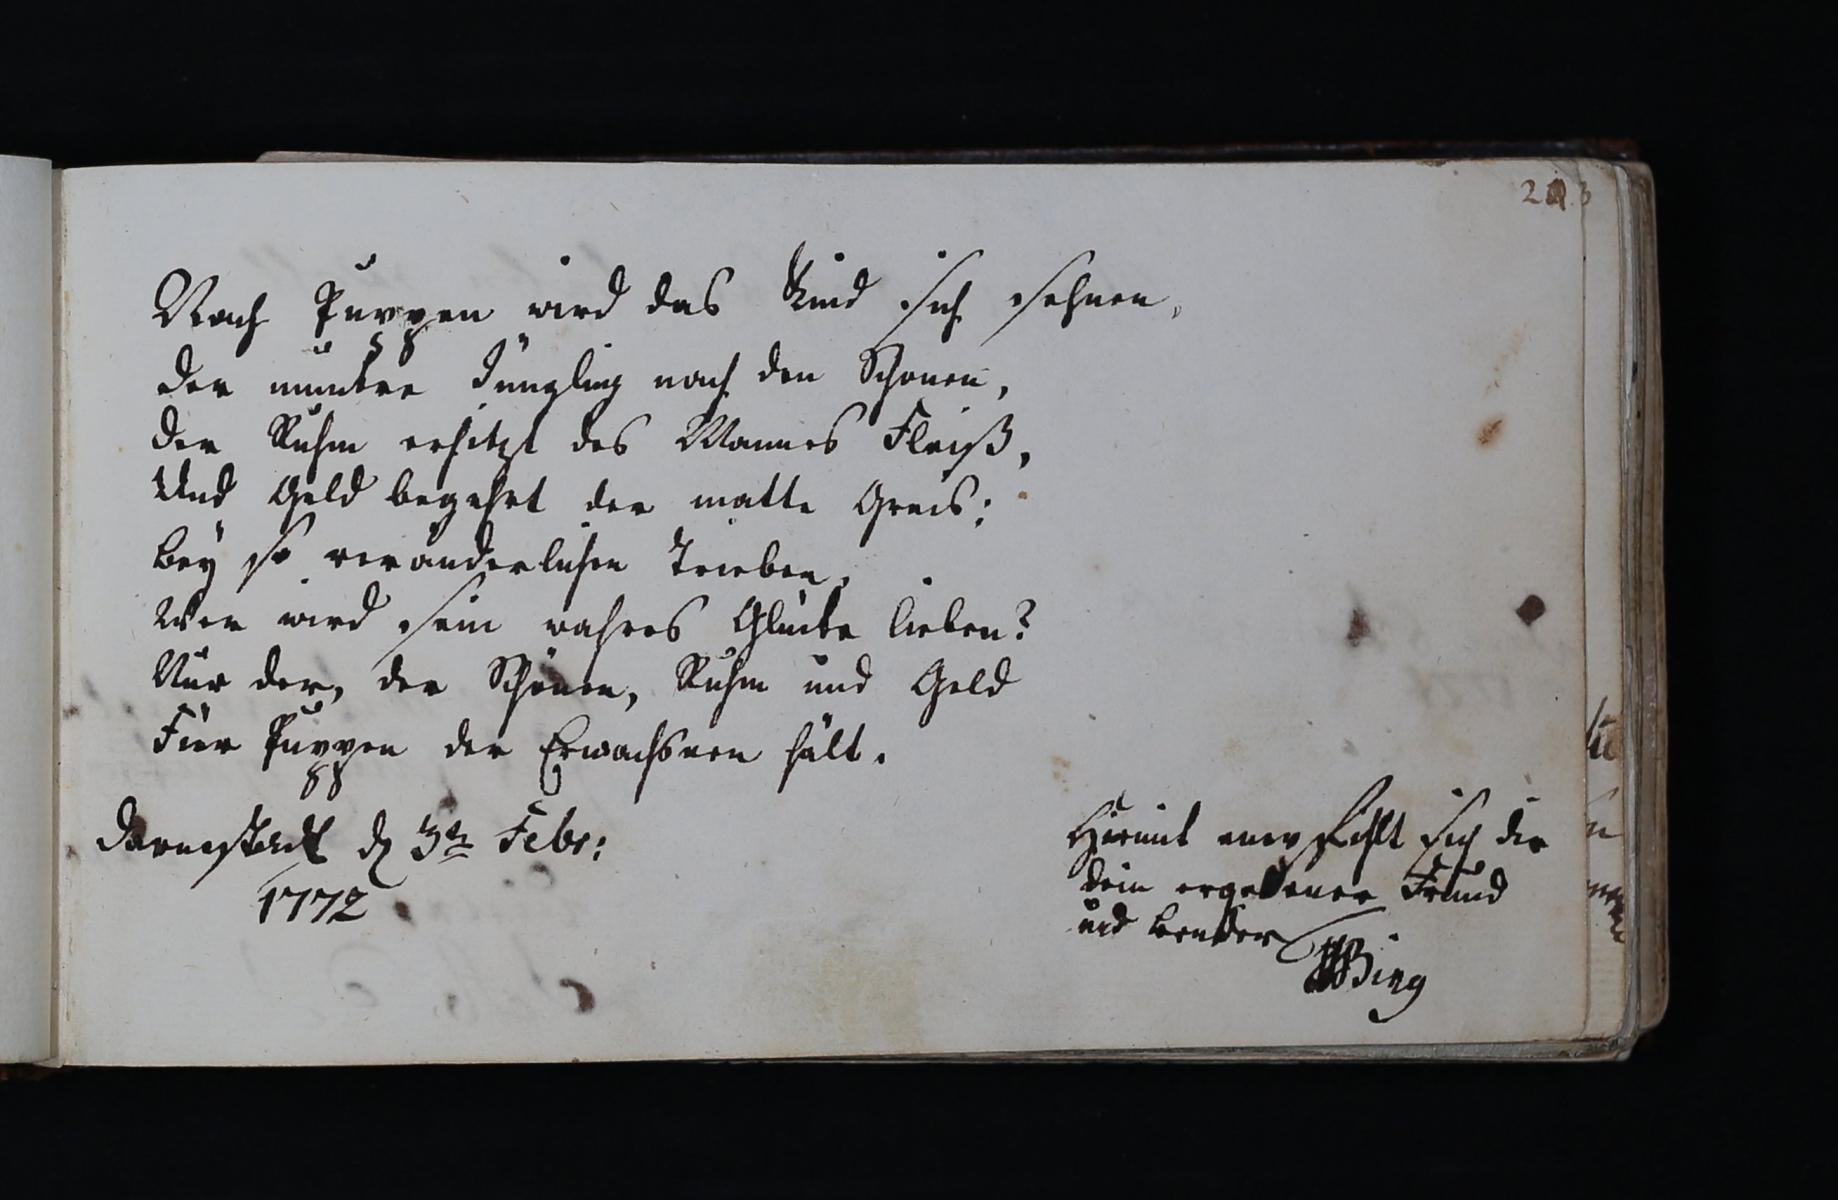 Nach Puppen wird das Kind sich sehnen,
Der muntre Jüngling nach den Schönen,
Der Ruhm erhitzt des Mannes Fleiß,
Und Geld begehrt der matte Greis:
Bey so veränderlichen Trieben,
Wer wird sein wahres Glücke lieben?
Nur der, der Schönen, Ruhm und Geld
Füer Puppen der Erwachsnen hält.
Darmstadt d 3ten Febr:
1772
Hiermit empfihlt sich dir
dein ergebener Freund
und Bruder